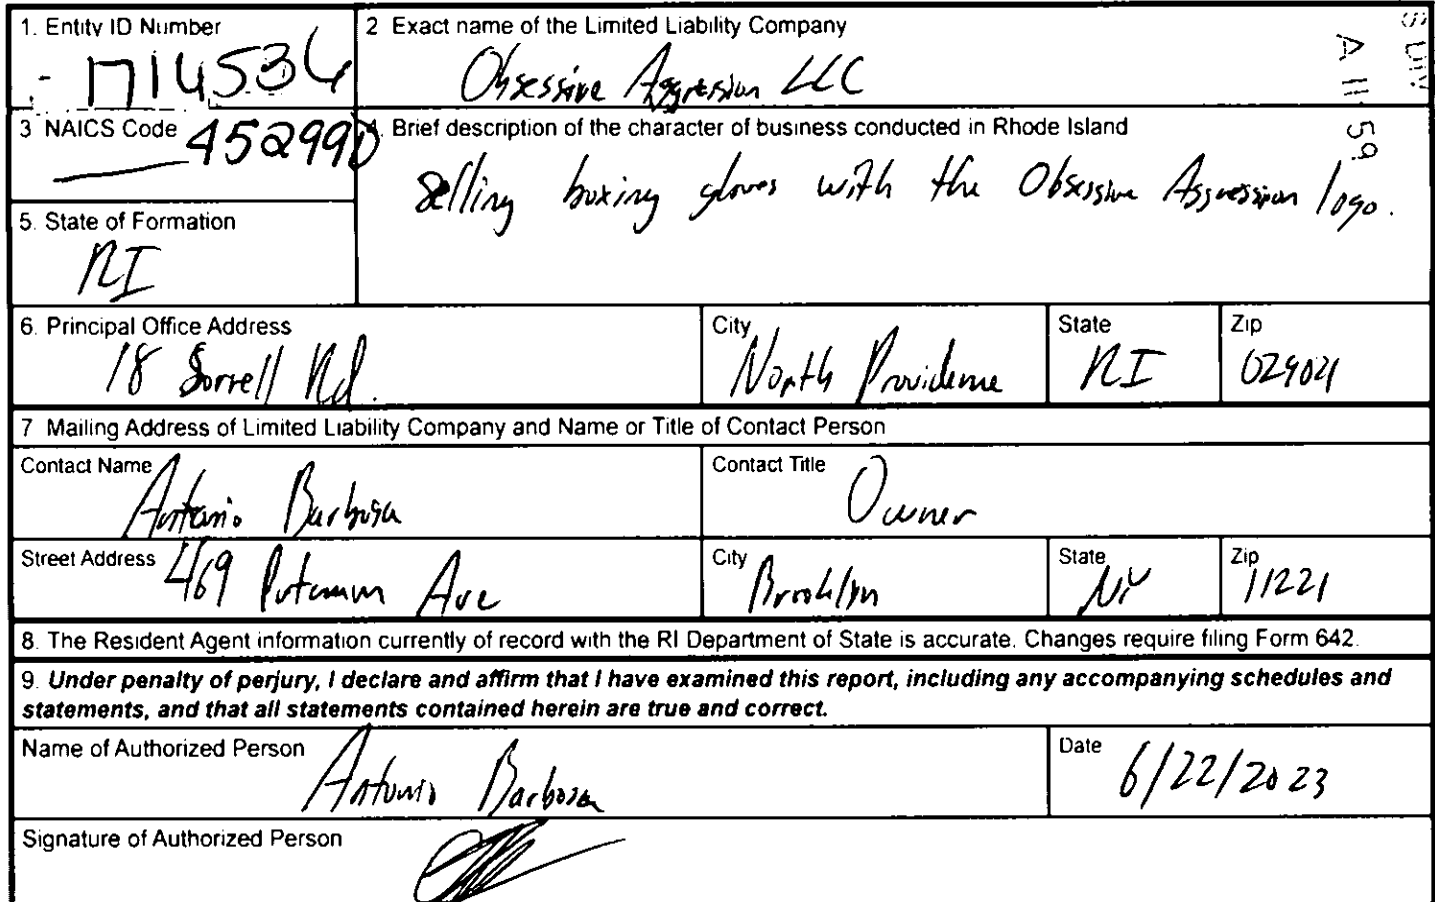 1. Entity ID Number
1714536
2 Exact name of the Limited Liability Company
Obsessive Aggression LLC
3 NAICS Code
452990
4. Brief description of the character of business conducted in Rhode Island
Selling boxing gloves with the Obsessive Aggression logo.
5. State of Formation
RI
6. Principal Office Address
18 Sorrell Rd.
City
North Providence
State
RI
Zip
7 Mailing Address of Limited Liability Company and Name or Title of Contact Person
Contact Name
Antonio Barbosa
Contact Title
Owner
Street Address
469 Putnam Ave
City
Brooklyn
State
NY
Zip
11221
8. The Resident Agent information currently of record with the RI Department of State is accurate. Changes require filing Form 642.
9. Under penalty of perjury, I declare and affirm that I have examined this report, including any accompanying schedules and
statements, and that all statements contained herein are true and correct.
Name of Authorized Person
Antonio Barbosa
Date
6/22/2023
Signature of Authorized Person
A 11: 59